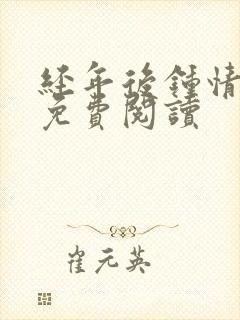 经年後鍾情
免費閱讀
崔元英